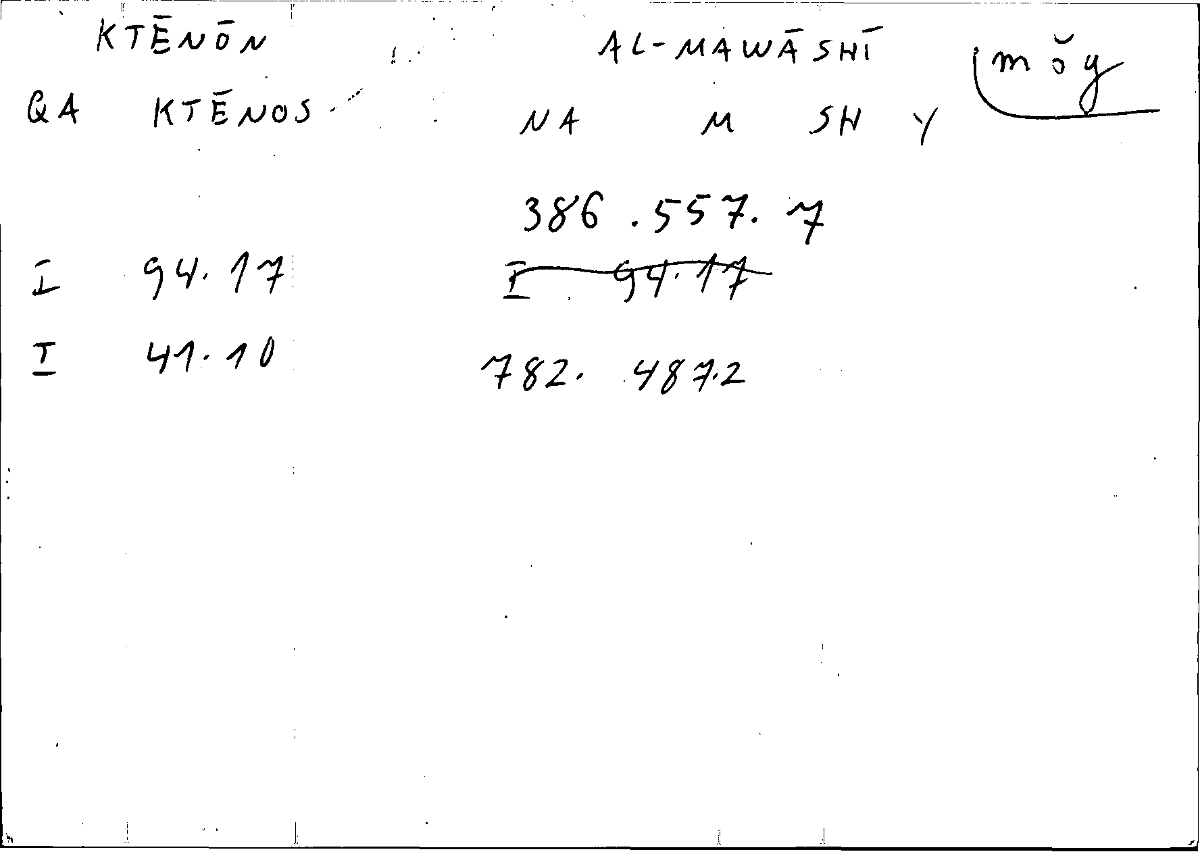 KTĒNŌN AL-MAWĀSHĪ mŏy
QA KTĒNOS NA M SH Y
386.557.7
I 94.17 I 94.17
I 41.10 782. 487.2